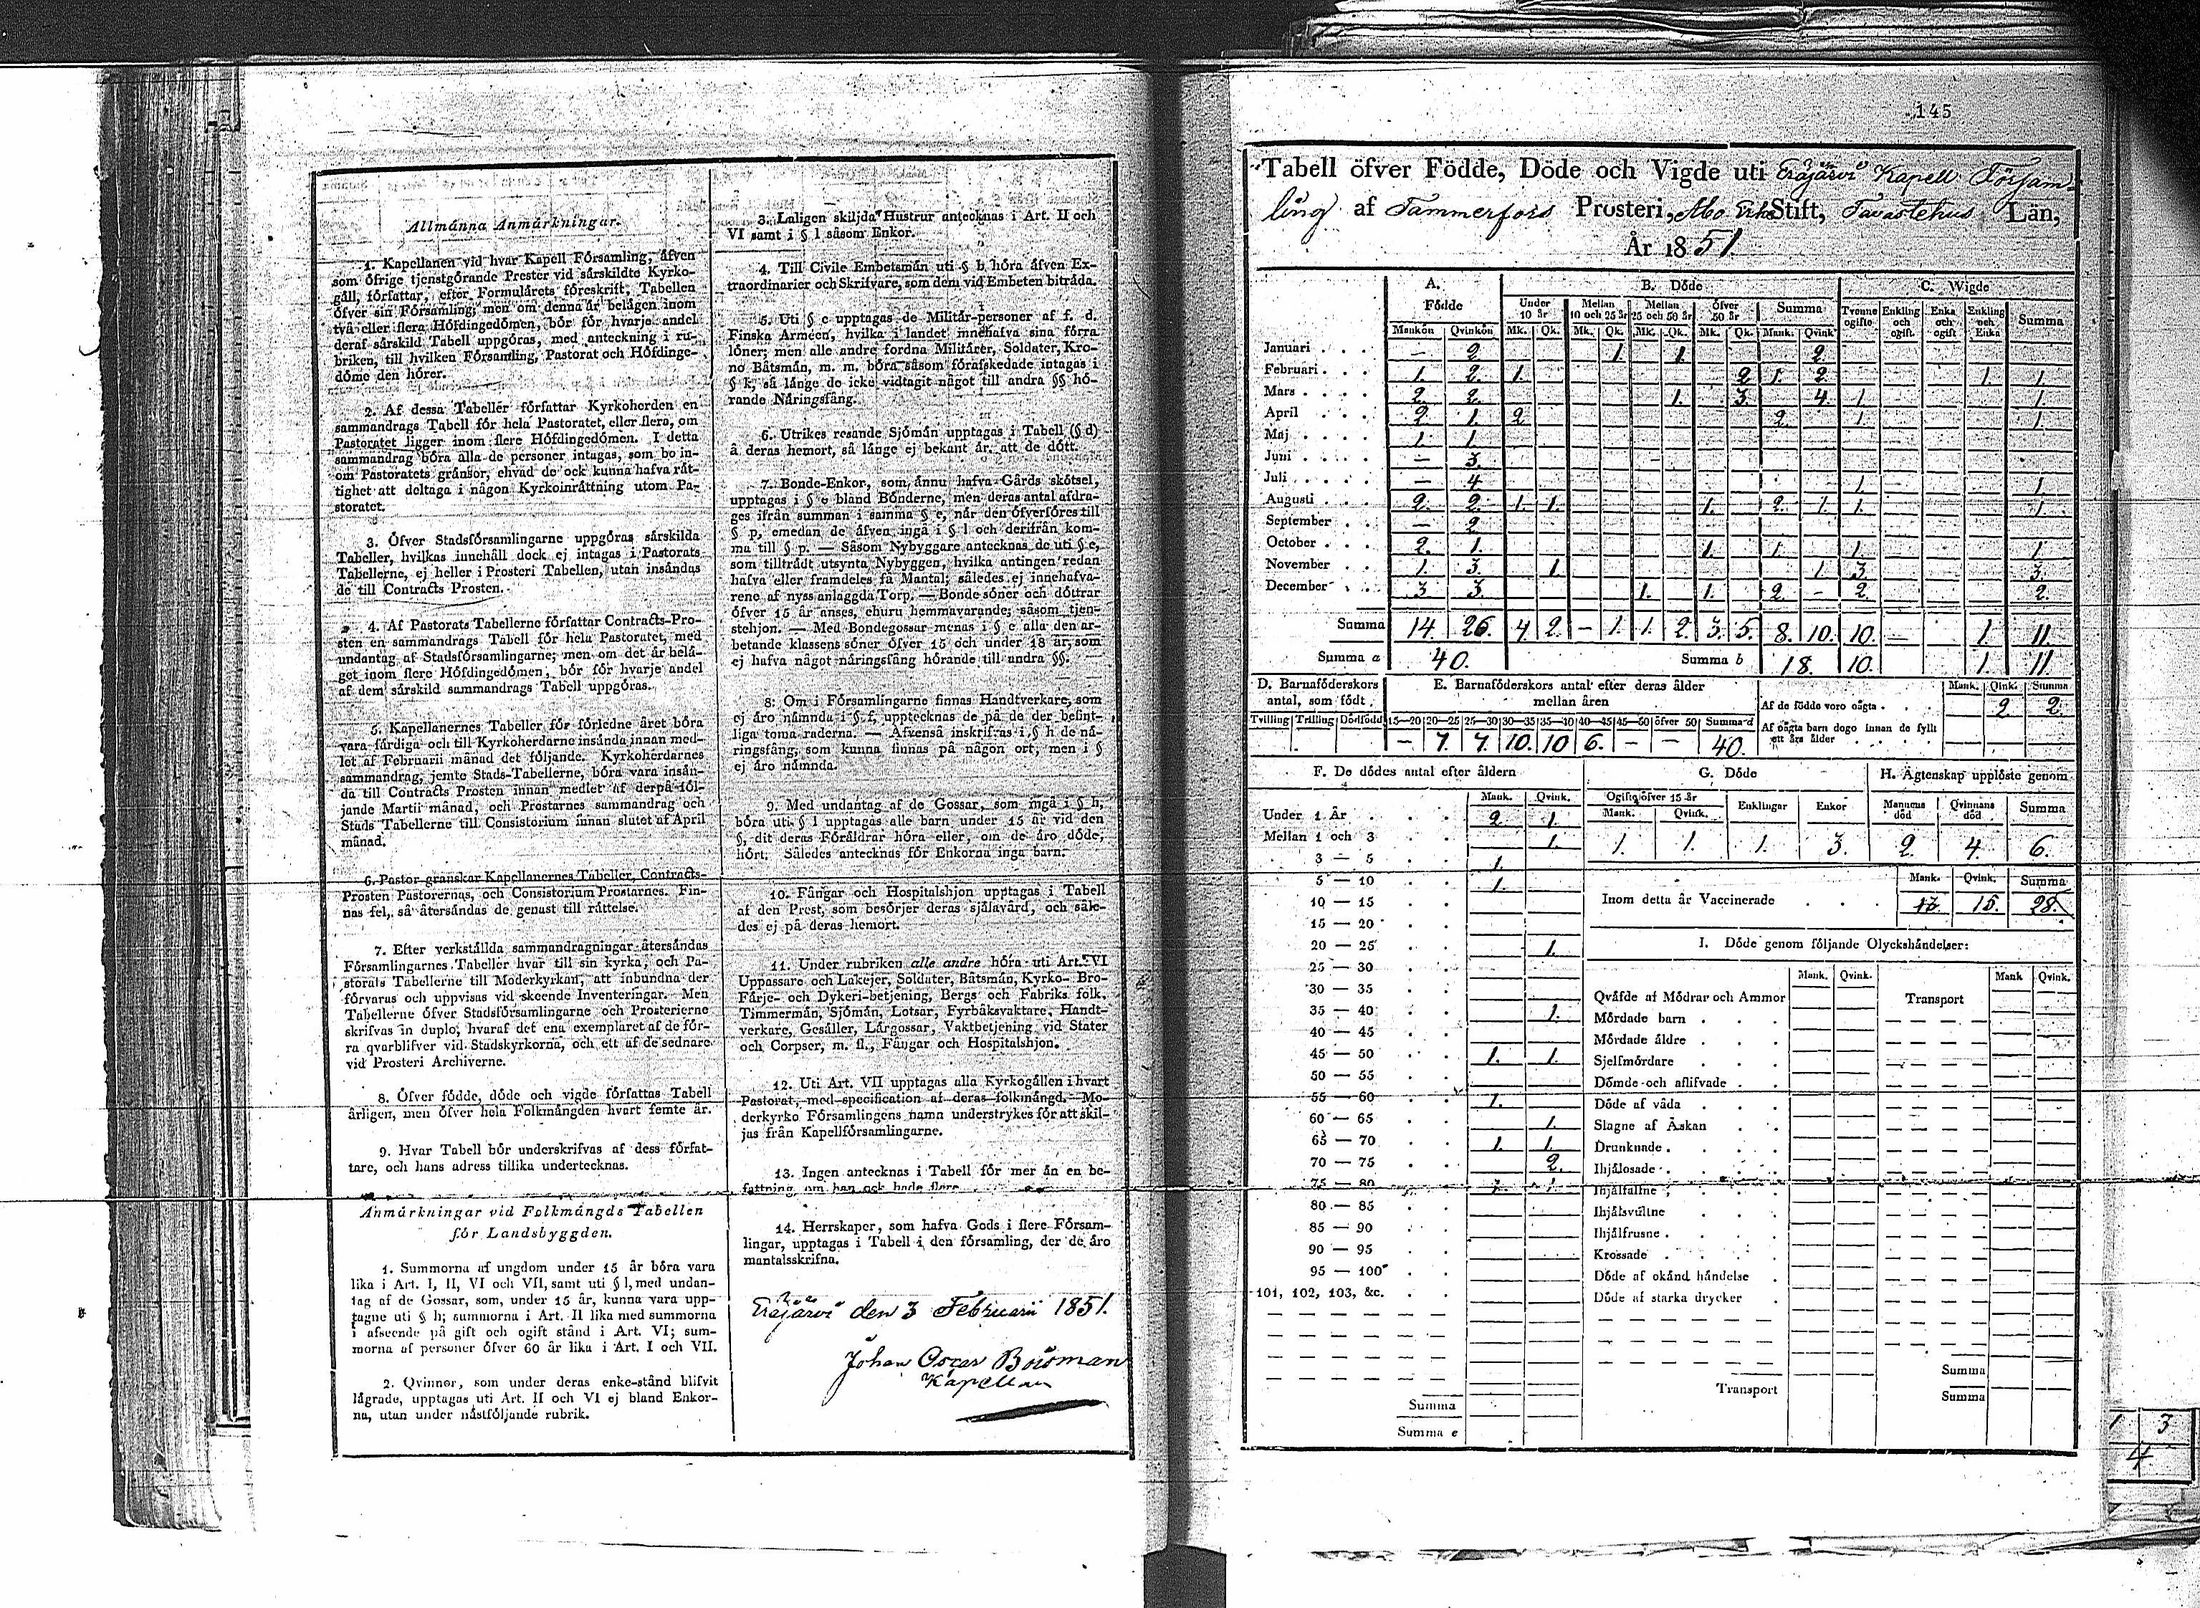 Allmänna Anmärkningar.
1. Kapellanen vid hvar Kapell Församling, äfven
som öfrige tjenstgörande Prester vid särskildte Kyrko-
gäll, författar, efter Formulärets föreskrift, Tabellen
öfver sin Församling; men om denna är belägen inom
två eller flera Höfdingedömen, bör för hvarje andel
deraf särskild Tabell uppgöras, med anteckning i ru-
briken, till hvilken Församling, Pastorat och Höfdinge-
döme den hörer.
2. Af dessa Tabeller författar Kyrkoherden en
sammandrags Tabell för hela Pastoratet, eller flera, om
Pastoratet ligger inom flere Höfdingedömen. I detta
sammandrag böra alla de personer intagas, som bo in-
om Pastoratets gränsor, ehvad de ock kunna hafva rät-
tighet att deltaga i någon Kyrkoinråttning utom Pa-
storatet.
3. Öfver Stadsförsamlingarne uppgöras särskilda
Tabeller, hvilkas innehåll dock ej intagas i Pastorats
Tabellerne, ej heller i Prosteri Tabellen, utan insändas
de till Contracts Prosten.
4. Af Pastorats Tabellerne författar Contracts-Pro-
sten en sammandrags Tabell för hela Pastoratet, med
undantag af Stadsförsamlingarne; men om det är belä-
get inom flere Höfdingedömen, bör för hvarje andel
af dem särskild sammandrags Tabell uppgöras.
5. Kapellanernes Tabeller för förledne året böra
vara färdiga och till Kyrkoherdarne insända innan med-
let af Februarii månad det följande. Kyrkoherdarnes
sammandrag, jemte Stads-Tabellerne, böra vara insän-
da till Contracts Prosten innan medlet af derpå föl-
jande Martii månad, och Prostarnes sammandrag och
Stads Tabellerne till Consistorium innan slutet af April
månad.
6. Pastor granskar Kapellanernes Tabeller, Contracts-
Prosten Pastorernas, och Consistorium Prostarnes. Fin-
nas fel, så återsändas de genast till rättelse.
7. Efter verkställda sammandragningar återsändas
Församlingarnes Tabeller hvar till sin kyrka, och Pa-
storats Tabellerne till Moderkyrkan, att inbundna der
förvaras och uppvisas vid skeende Inventeringar. Men
Tabellerne öfver Stadsförsamlingarne och Prosterierne
skrifvas in duplo, hvaraf det ena exemplaret af de för-
ra qvarblifver vid Stadskyrkorna, och ett af de sednare
vid Prosteri Archiverne.
8. Öfver födde, döde och vigde författas Tabell
årligen, men öfver hela Folkmängden hvart femte år.
9. Hvar Tabell bör underskrifvas af dess förfat-
tare, och hans adress tillika undertecknas.
Anmärkningar vid Folkmängds Tabellen
för Landsbyggden.
1. Summorna af ungdom under 15 år böra vara
lika i Art. I, II, VI och VII, samt uti § l, med undan-
tag af de Gossar, som, under 15 år, kunna vara upp-
tagne uti § h; summorna i Art. II lika med summorna
i afseende på gift och ogift stånd i Art. VI; sum-
morna af personer öfver 60 år lika i Art. I och VII.
2. Qvinnor, som under deras enke-stånd blifvit
lägrade, upptagas uti Art. II och VI ej bland Enkor-
na, utan under nästföljande rubrik.
3. Laligen skiljda Hustrur antecknas i Art. II och
VI samt i § l såsom Enkor.
4. Till Civile Embetsmän uti § b höra äfven Ex-
traordinarier och Skrifvare, som dem vid Embeten biträda.
5. Uti § c upptagas de Militär-personer af f. d.
Finska Arméen, hvilka i landet innehafva sina förra
löner; men alle andre fordna Militärer, Soldater, Kro-
no Båtsmän, m. m. böra såsom förafskedade intagas i
§ k, så länge de icke vidtagit något till andra §§ hö-
rande Näringsfång.
6. Utrikes resande Sjömän upptagas i Tabell (§ d)
å deras hemort, så länge ej bekant är, att de dött.
7. Bonde-Enkor, som ännu hafva Gårds skötsel,
upptagas i § e bland Bönderne, men deras antal afdra-
ges ifrån summan i samma § e, når den öfverföres till
§ p, emedan de äfven ingå i § l och derifrån kom-
ma till § p. — Såsom Nybyggare antecknas de uti § e,
som tillträdt utsynta Nybyggen, hvilka antingen redan
hafva eller framdeles få Mantal; således ej innehafva-
rene af nyss anlaggda Torp. — Bonde söner och döttrar
öfver 15 år anses, ehuru hemmavarande, såsom tjen-
stehjon. — Med Bondegossar menas i § e alla den ar-
betande klassens söner öfver 15 och under 18 år, som
ej hafva något näringsfång hörande till andra §§.
8. Om i Församlingarne finnas Handtverkare, som
ej äro nämnda i § f, upptecknas de på de der befint-
liga toma raderna. — Äfvenså inskrifvas i § h de nä-
ringsfång, som kunna finnas på någon ort, men i §
ej äro nämnda.
9. Med undantag af de Gossar, som ingå i § h,
böra uti § l upptagas alle barn under 15 år vid den
§, dit deras Föräldrar höra eller, om de äro döde,
hört. Således antecknas för Enkorna inga barn.
10. Fångar och Hospitalshjon upptagas i Tabell
af den Prest, som besörjer deras själavård, och såle-
des ej på deras hemort.
11. Under rubriken alle andre höra uti Art. VI
Uppassare och Lakejer, Soldater, Båtsmän, Kyrko- Bro-
Färje- och Dykeri-betjening, Bergs och Fabriks folk,
Timmermän, Sjömän, Lotsar, Fyrbåksvaktare, Handt-
verkare, Gesäller, Lärgossar, Vaktbetjening vid Stater
och Corpser, m. fl., Fångar och Hospitalshjon.
12. Uti Art. VII upptagas alla Kyrkogällen i hvart
Pastorat, med specification af deras folkmängd. Mo-
derkyrko Församlingens namn understrykes för att skil-
jas från Kapellförsamlingarne.
13. Ingen antecknas i Tabell för mer än en be-
fattning, om han ock hade flere.
14. Herrskaper, som hafva Gods i flere Försam-
lingar, upptagas i Tabell i den församling, der de äro
mantalsskrifna.
Eräjärvi den 3 Februarii 1851.
Johan Oscar Boisman
Kapellan
145
Tabell öfver Födde, Döde och Vigde uti Eräjärvi Kapell Försam-
ling af Tammerfors Prosteri, Åbo Erke Stift, Tavastehus Län,
År 1851.
A. Födde B. Döde C. Wigde
Under 10 år Mellan 10 och 25 år Mellan 25 och 50 år öfver 50 år Summa Tvenne ogifte Enkling och ogift. Enka och ogift Enkling och Enka Summa
Mankön Qvinkön Mk. Qk. Mk. Qk. Mk. Qk. Mk. Qk. Mank. Qvink.
Januari — 2 1. 1. 2
Februari 1. 2. 1. 2 1. 2 1. 1.
Mars 2. 2. 1. 3. 4. 1. 1.
April 2. 1. 2 2. 1. 1.
Maj 1. 1.
Juni — 3.
Juli — 4 1. 1.
Augusti 2. 2. 1. 1. 1. 2. 1. 1. 1.
September — 2
October 2. 1. 1. 1. 1. 1.
November 1. 3. 1. 1. 3. 3.
December 3 3. 1. 1. 2 — 2. 2.
Summa 14. 26. 4. 2. — 1. 1. 2. 3. 5. 8. 10. 10. — 1. 11.
Summa a 40. Summa b 18. 10. 1. 11.
D. Barnaföderskors antal, som födt
Tvilling Trilling Dödfödd
E. Barnaföderskors antal efter deras ålder mellan åren
15—20 20—25 25—30 30—35 35—40 40—45 45—50 öfver 50 Summa d
— 7. 7. 10. 10 6. — — 40.
Mank. Qink. Summa
Af de födda voro oägta 2. 2.
Af oägta barn dogo innan de fyllt
ett års ålder
F. De dödes antal efter åldern
Mank. Qvink.
Under 1 År 2. 1.
Mellan 1 och 3 1.
3 — 5 1.
5 — 10 1.
10 — 15
15 — 20
20 — 25 1.
25 — 30
30 — 35
35 — 40 1.
40 — 45
45 — 50 1. 1.
50 — 55
55 — 60 1.
60 — 65 1.
65 — 70 1. 1.
70 — 75 2.
75 — 80 1. 1.
80 — 85
85 — 90
90 — 95
95 — 100
101, 102, 103, &c.
Summa
Summa e
G. Döde
Ogifta öfver 15 år Enklingar Enkor
Mank. Qvink.
1. 1. 1. 3.
H. Ägtenskap upplöste genom
Mannens död Qvinnans död Summa
2. 4. 6.
Mank. Qvink. Summa
Inom detta år Vaccinerade 13. 15. 28.
I. Döde genom följande Olyckshändelser:
Mank. Qvink. Mank Qvink.
Qväfde af Mödrar och Ammor Transport
Mördade barn
Mördade äldre
Sjelfmördare
Dömde och aflifvade
Döde af våda
Slagne af Åskan
Drunknade
Ihjälosade
Ihjälfallne
Ihjälsvultne
Ihjälfrusne
Krossade
Döde af okänd händelse
Döde af starka drycker
Summa
Transport Summa
1 3
4